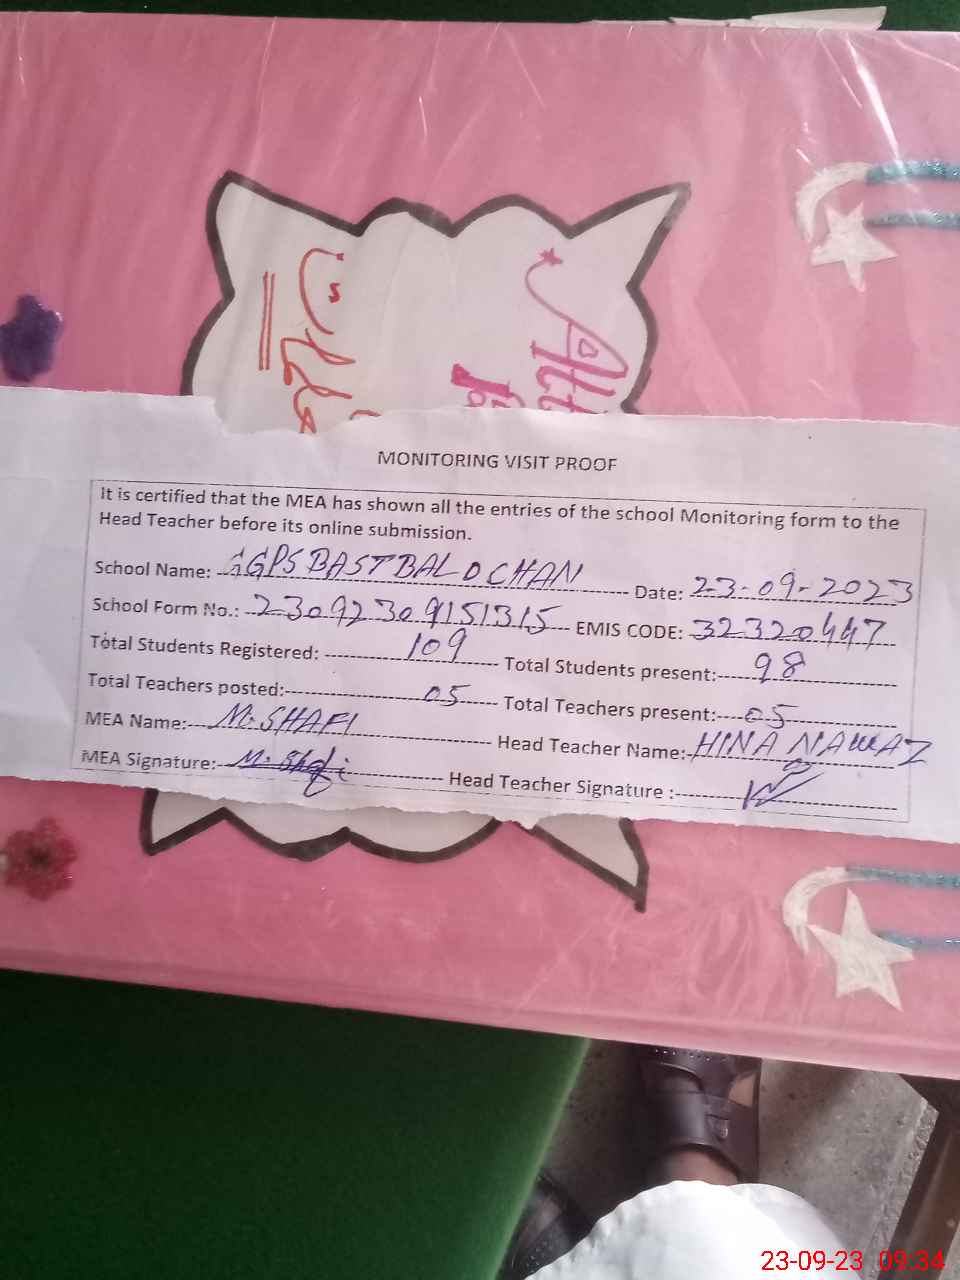 MONITORING VISIT PROOF
It is certified that the MEA has shown all the entries of the school Monitoring form to the
Head Teacher before its online submission.
School Name: GGPS BASTBALOCHAN Date: 23-09-2023
School Form No.: 23092309151315 EMIS CODE: 32320447
Total Students Registered: 109 Total Students present: 98
Total Teachers posted: 05 Total Teachers present: 05
MEA Name: M.SHAFI Head Teacher Name: HINA NAWAZ
MEA Signature: M. Shafi Head Teacher Signature :
23-09-23 09:34